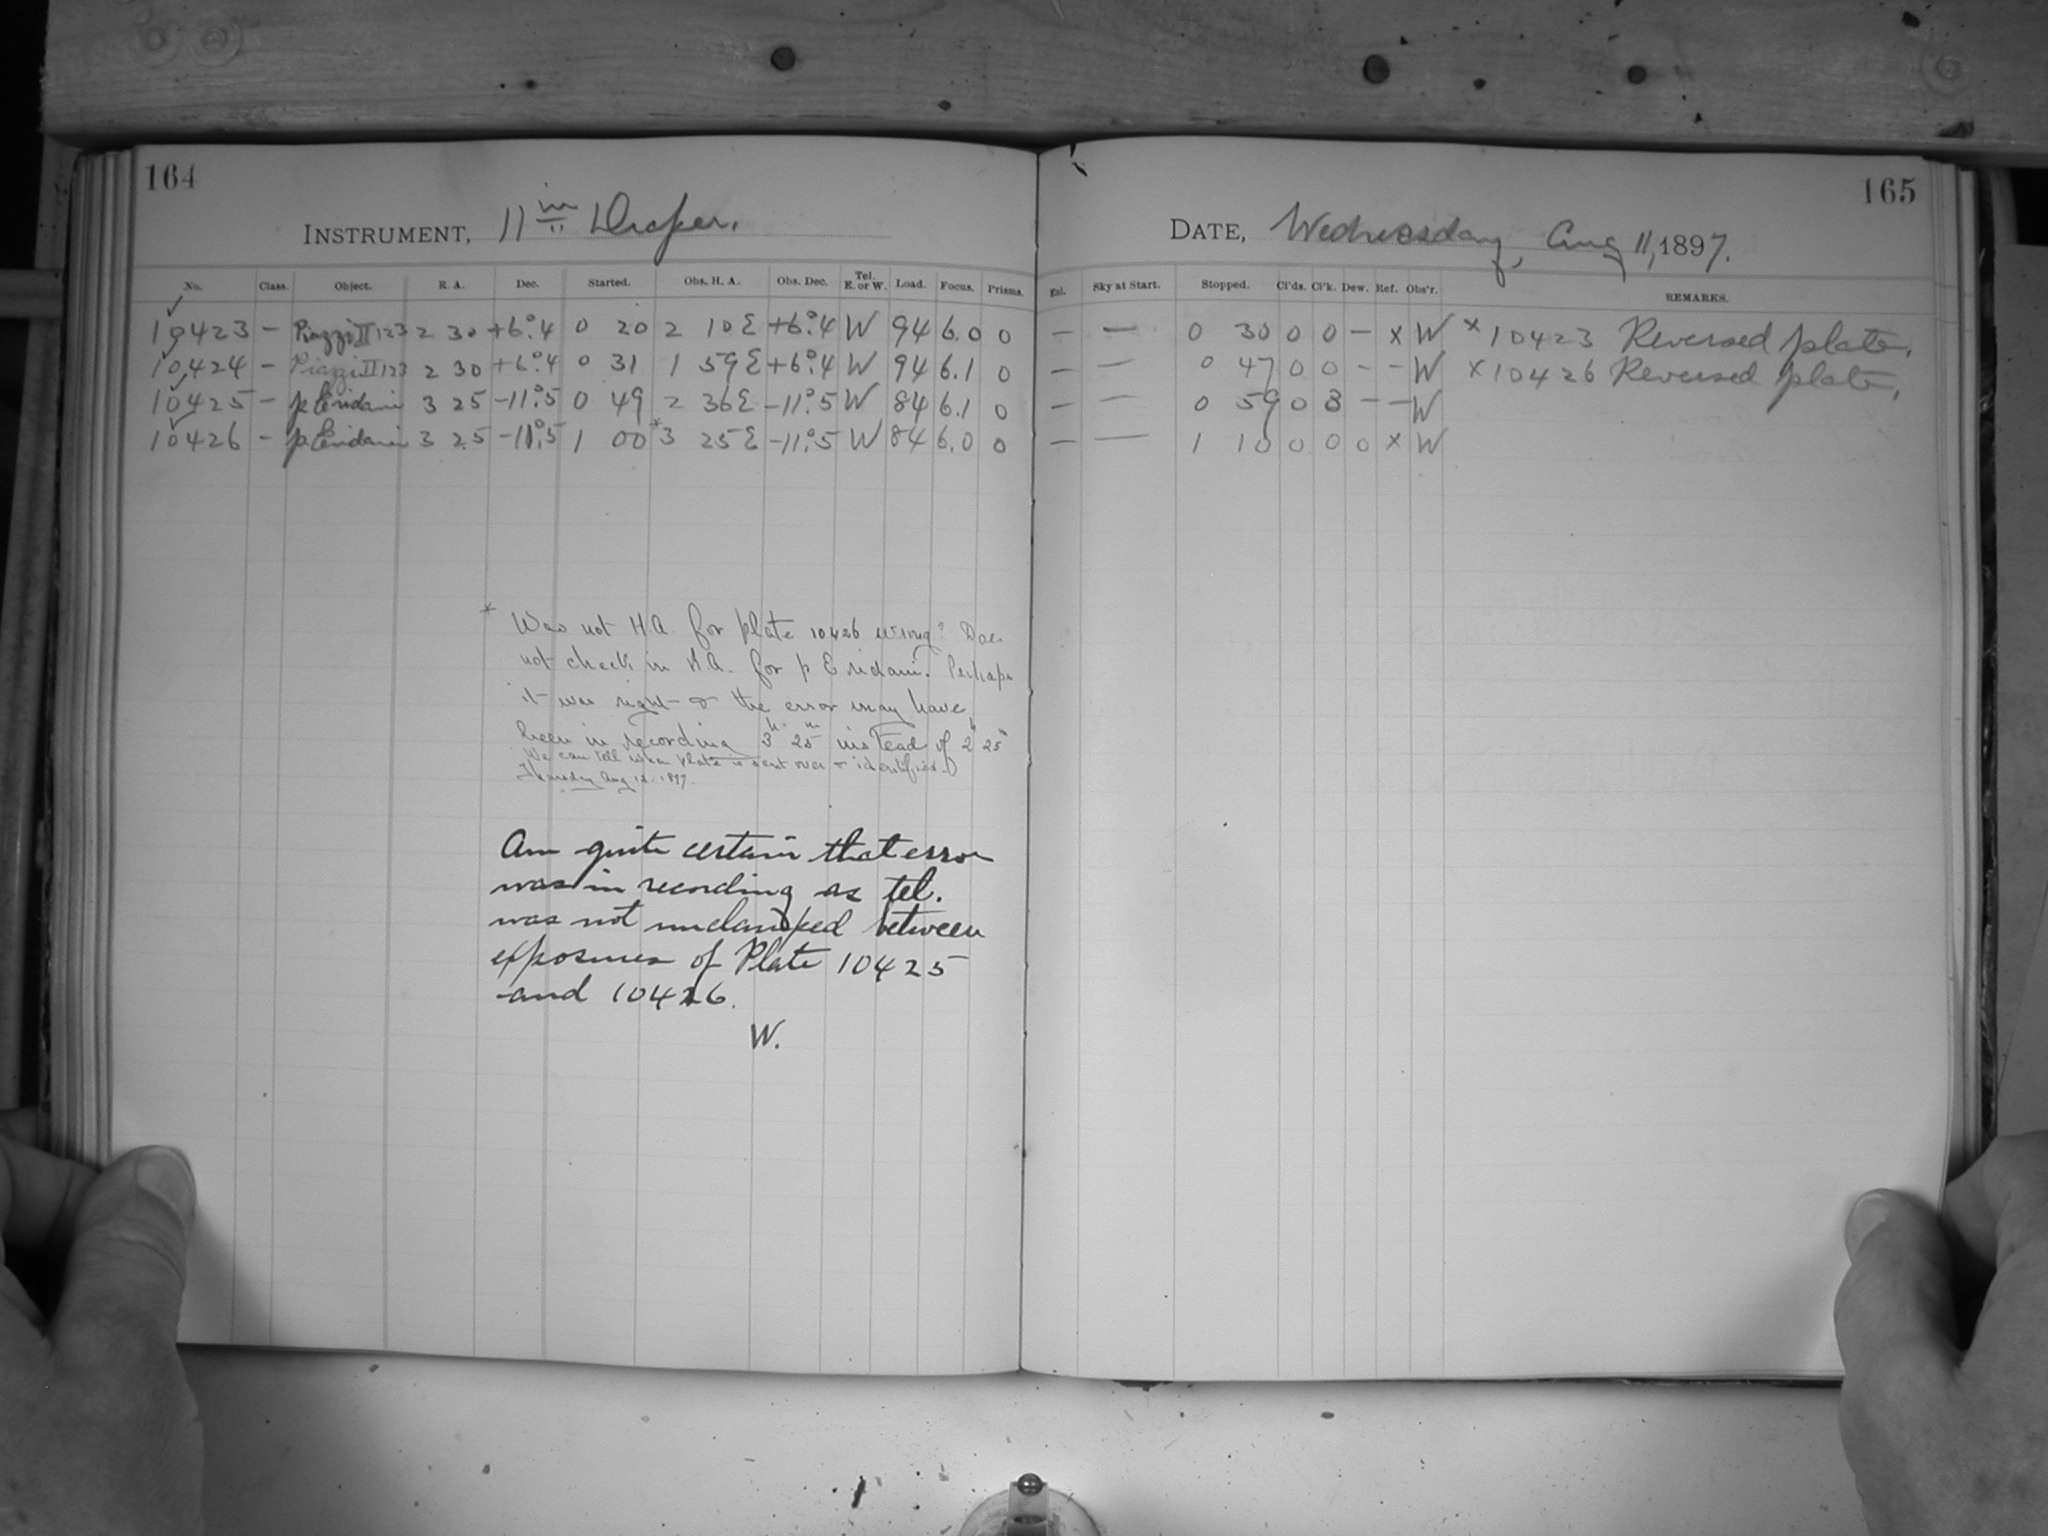 164
INSTRUMENT, 11 in Draper.
No. Class. Object. R. A. Dec. Started. Obs. H. A. Obs. Dec. Tel. E. or W. Load. Focus. Prisms.
10423 – Piazzi II 123 2 30 +6°.4 0 20 2 10 E +6°.4 W 94 6.0 0
10424 – Piazzi II 123 2 30 +6°.4 0 31 1 59 E +6°.4 W 94 6.1 0
10425 – p Eridani 3 25 –11°.5 0 49 2 36 E –11°.5 W 84 6.1 0
10426 – p Eridani 3 25 –11°.5 1 00 *3 25 E –11°.5 W 84 6.0 0
* Was not H.A. for plate 10426 wrong? Does
not check in R.A. for p Eridani. Perhaps
it was right & the error may have
been in recording 3h 25m instead of 2h 25m
We can tell when plate is sent over & identified.
Thursday Aug 12. 1897.
Am quite certain that error
was in recording as tel.
was not unclamped between
exposures of Plate 10425
and 10426.
W.
165
DATE, Wednesday, Aug 11, 1897.
Ext. Sky at Start. Stopped. Cl'ds. Cl'k. Dew. Ref. Obs'r. REMARKS.
– – 0 30 0 0 – x W x 10423 Reversed plate.
– – 0 47 0 0 – – W x 10426 Reversed plate.
– – 0 59 0 3 – – W
– – 1 10 0 0 0 x W